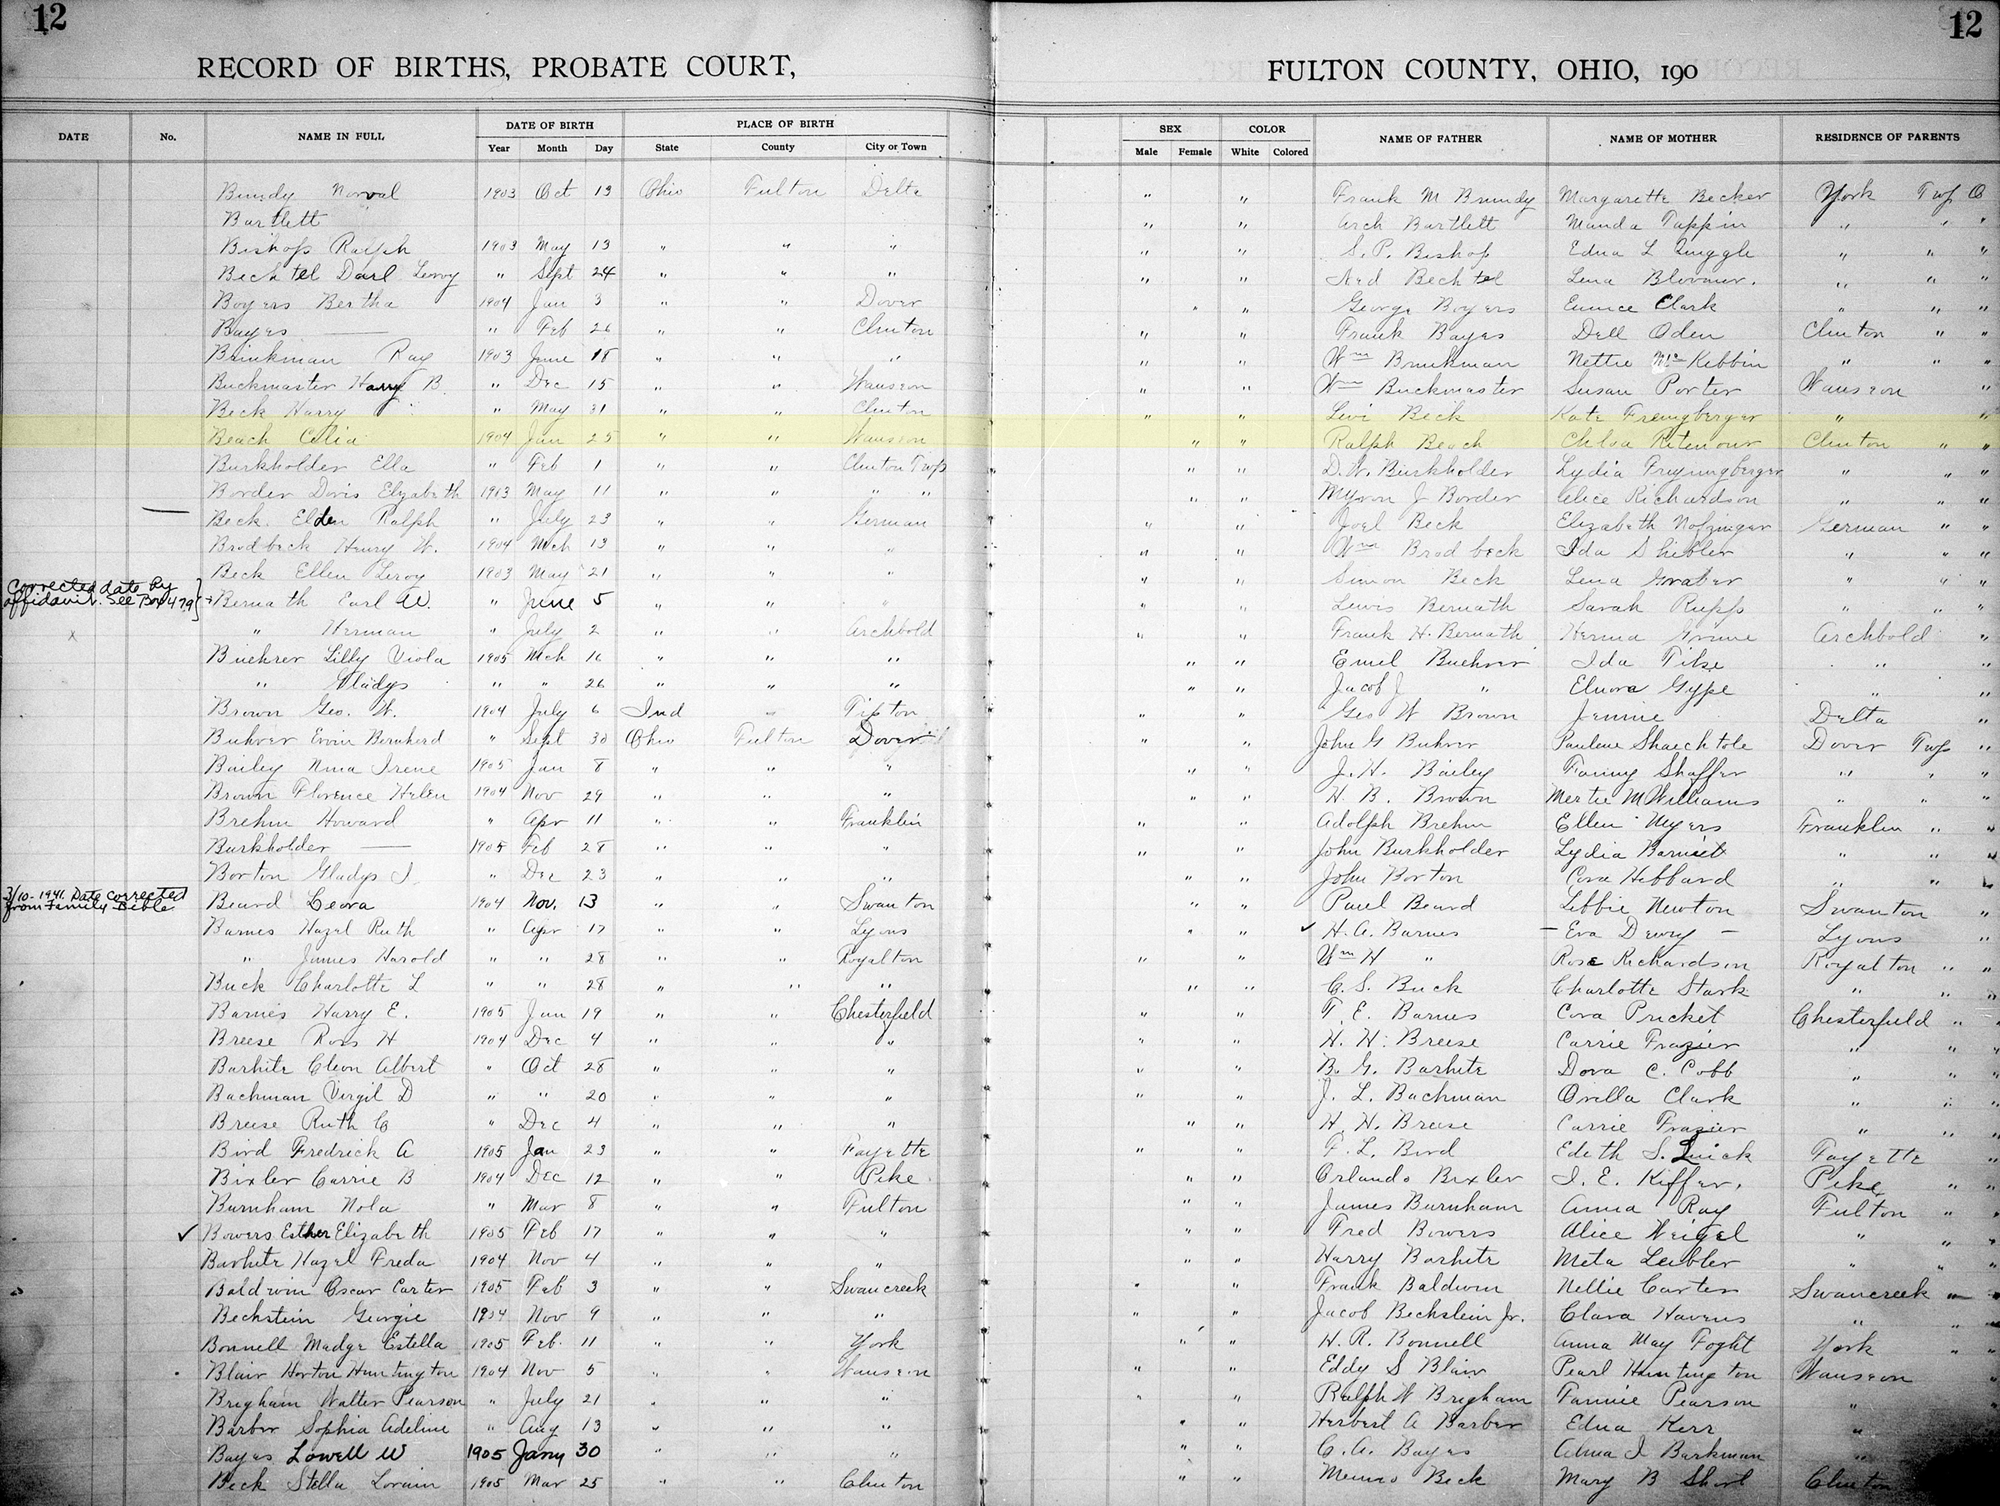 12 12
RECORD OF BIRTHS, PROBATE COURT, FULTON COUNTY, OHIO, 190
DATE No. NAME IN FULL DATE OF BIRTH Year Month Day PLACE OF BIRTH State County City or Town SEX Male Female COLOR White Colored NAME OF FATHER NAME OF MOTHER RESIDENCE OF PARENTS
Bundy Norval 1903 Oct 13 Ohio Fulton Delta " " Frank M Bundy Margarette Becker York Twp O
Bartlett " " Arch Bartlett Manda Tappin " " "
Bishop Ralph 1903 May 13 " " " " " S. P. Bishop Edna L Quiggle " " "
Bechtel Darl Leroy " Sept 24 " " " " " Ned Bechtel Lena " " "
Boyers Bertha 1904 Jan 3 " " Dover " " George Boyers Eunice Clark " " "
Bayes — " Feb 26 " " Clinton " " Frank Bayes Dell Oden Clinton " "
Brinkman Ray 1903 June 18 " " " " " Wm Brinkman Nettie McKibbin " " "
Buckmaster Harry B. " Dec 15 " " Wauseon " " Wm Buckmaster Susan Porter Wauseon "
Beck Harry " May 31 " " Clinton " " Levi Beck Kate " "
Beach Celia 1904 Jan 25 " " Wauseon " " Ralph Beach Chloa Ritenour Clinton " "
Burkholder Ella " Feb 1 " " Clinton Twp " " D. W. Burkholder Lydia " " "
Border Doris Elizabeth 1903 May 11 " " " " " " Myron J Border Alice Richardson " " "
Beck Elden Ralph " July 23 " " German " " Joel Beck Elizabeth Nofzinger German " "
Brodbeck Henry W. 1904 Mch 13 " " " " " Wm Brodbeck Ida Shibler " " "
Beck Ellen Leroy 1903 May 21 " " " " " Simon Beck Lena Graber " " "
Corrected date by affidavit. See Box 479 } + Bernath Earl W. " June 5 " " " " " Lewis Bernath Sarah Rupp " " "
x " Herman " July 2 " " Archbold " " Frank H. Bernath Herma Archbold "
Buehrer Lilly Viola 1905 Mch 16 " " " " " Emil Buehrer Ida " "
" Gladys " " 26 " " " " " Jacob J " Elnora Gype " "
Brown Geo. W. 1904 July 6 Ind " Tipton " " Geo W Brown Jennie Delta "
Buhrer Ervin Bernherd " Sept 30 Ohio Fulton Dover " " John G Buhrer Paulene Dover Twp "
Bailey Nina Irene 1905 Jan 8 " " " " " J. H. Bailey Fanny Shaffer " " "
Brown Florence Helen 1904 Nov 29 " " " " " H. B. Brown Mertie McWilliams " " "
Brehm Howard " Apr 11 " " Franklin " " Adolph Brehm Ellen Myers Franklin " "
Burkholder — 1905 Feb 28 " " " " " John Burkholder Lydia " " "
Borton Gladys I. " Dec 23 " " " " " John Borton Cora Hibbard " " "
3/10-1941. Date Corrected from Family Bible Beard Leora 1904 Nov. 13 " " Swanton " " Paul Beard Libbie Newton Swanton "
Barnes Hazel Ruth " Apr 17 " " Lyons " " ✓ H. A. Barnes — Eva Dewey — Lyons "
" James Harold " " 28 " " Royalton " " Wm H " Rose Richardson Royalton " "
Buck Charlotte L " " 28 " " " " " C. S. Buck Charlotte Stark " " "
Barnes Harry E. 1905 Jan 19 " " Chesterfield " " T. E. Barnes Cora Pricket Chesterfield " "
Breese Ross H 1904 Dec 4 " " " " " H. H. Breese Carrie Frazier " " "
Barhite Cleon Albert " Oct 28 " " " " " B. G. Barhite Dora C. Cobb " " "
Bachman Virgil D " " 20 " " " " " J. L. Bachman Orilla Clark " " "
Breese Ruth C " Dec 4 " " " " " H. H. Breese Carrie Frazier " " "
Bird Fredrick A 1905 Jan 23 " " Fayette " " F. L. Bird Edith S. Quick Fayette "
Bixler Carrie B 1904 Dec 12 " " Pike " " Orlando Bixler I. E. Kiffer. Pike " "
Burnham Nola " Mar 8 " " Fulton " " James Burnham Anna Ray Fulton " "
✓ Bowers Esther Elizabeth 1905 Feb 17 " " " " " Fred Bowers Alice Weigel " " "
Barhite Hazel Freda 1904 Nov 4 " " " " " Harry Barhite Meta Leibler " " "
Baldwin Oscar Carter 1905 Feb 3 " " Swancreek " " Frank Baldwin Nellie Carter Swancreek " "
Bechstein Georgie 1904 Nov 9 " " " " " Jacob Bechstein Jr. Clara Havens " " "
Bonnell Madge Estella 1905 Feb. 11 " " York " " H. R. Bonnell Anna May Foght York " "
Blair Horton Huntington 1904 Nov 5 " " Wauseon " " Eddy S Blair Pearl Huntington Wauseon "
Brigham Walter Pearson " July 21 " " " " " Ralph W Brigham Fannie Pearson " "
Barber Sophia Adeline " Aug 13 " " " " " Herbert A Barber Edna Kerr " "
Bayes Lowell W 1905 Jany 30 " " " " " C. A. Bayes Alma I Barkman " "
Beck Stella Lorain 1905 Mar 25 " " Clinton " " Beck Mary B Short Clinton